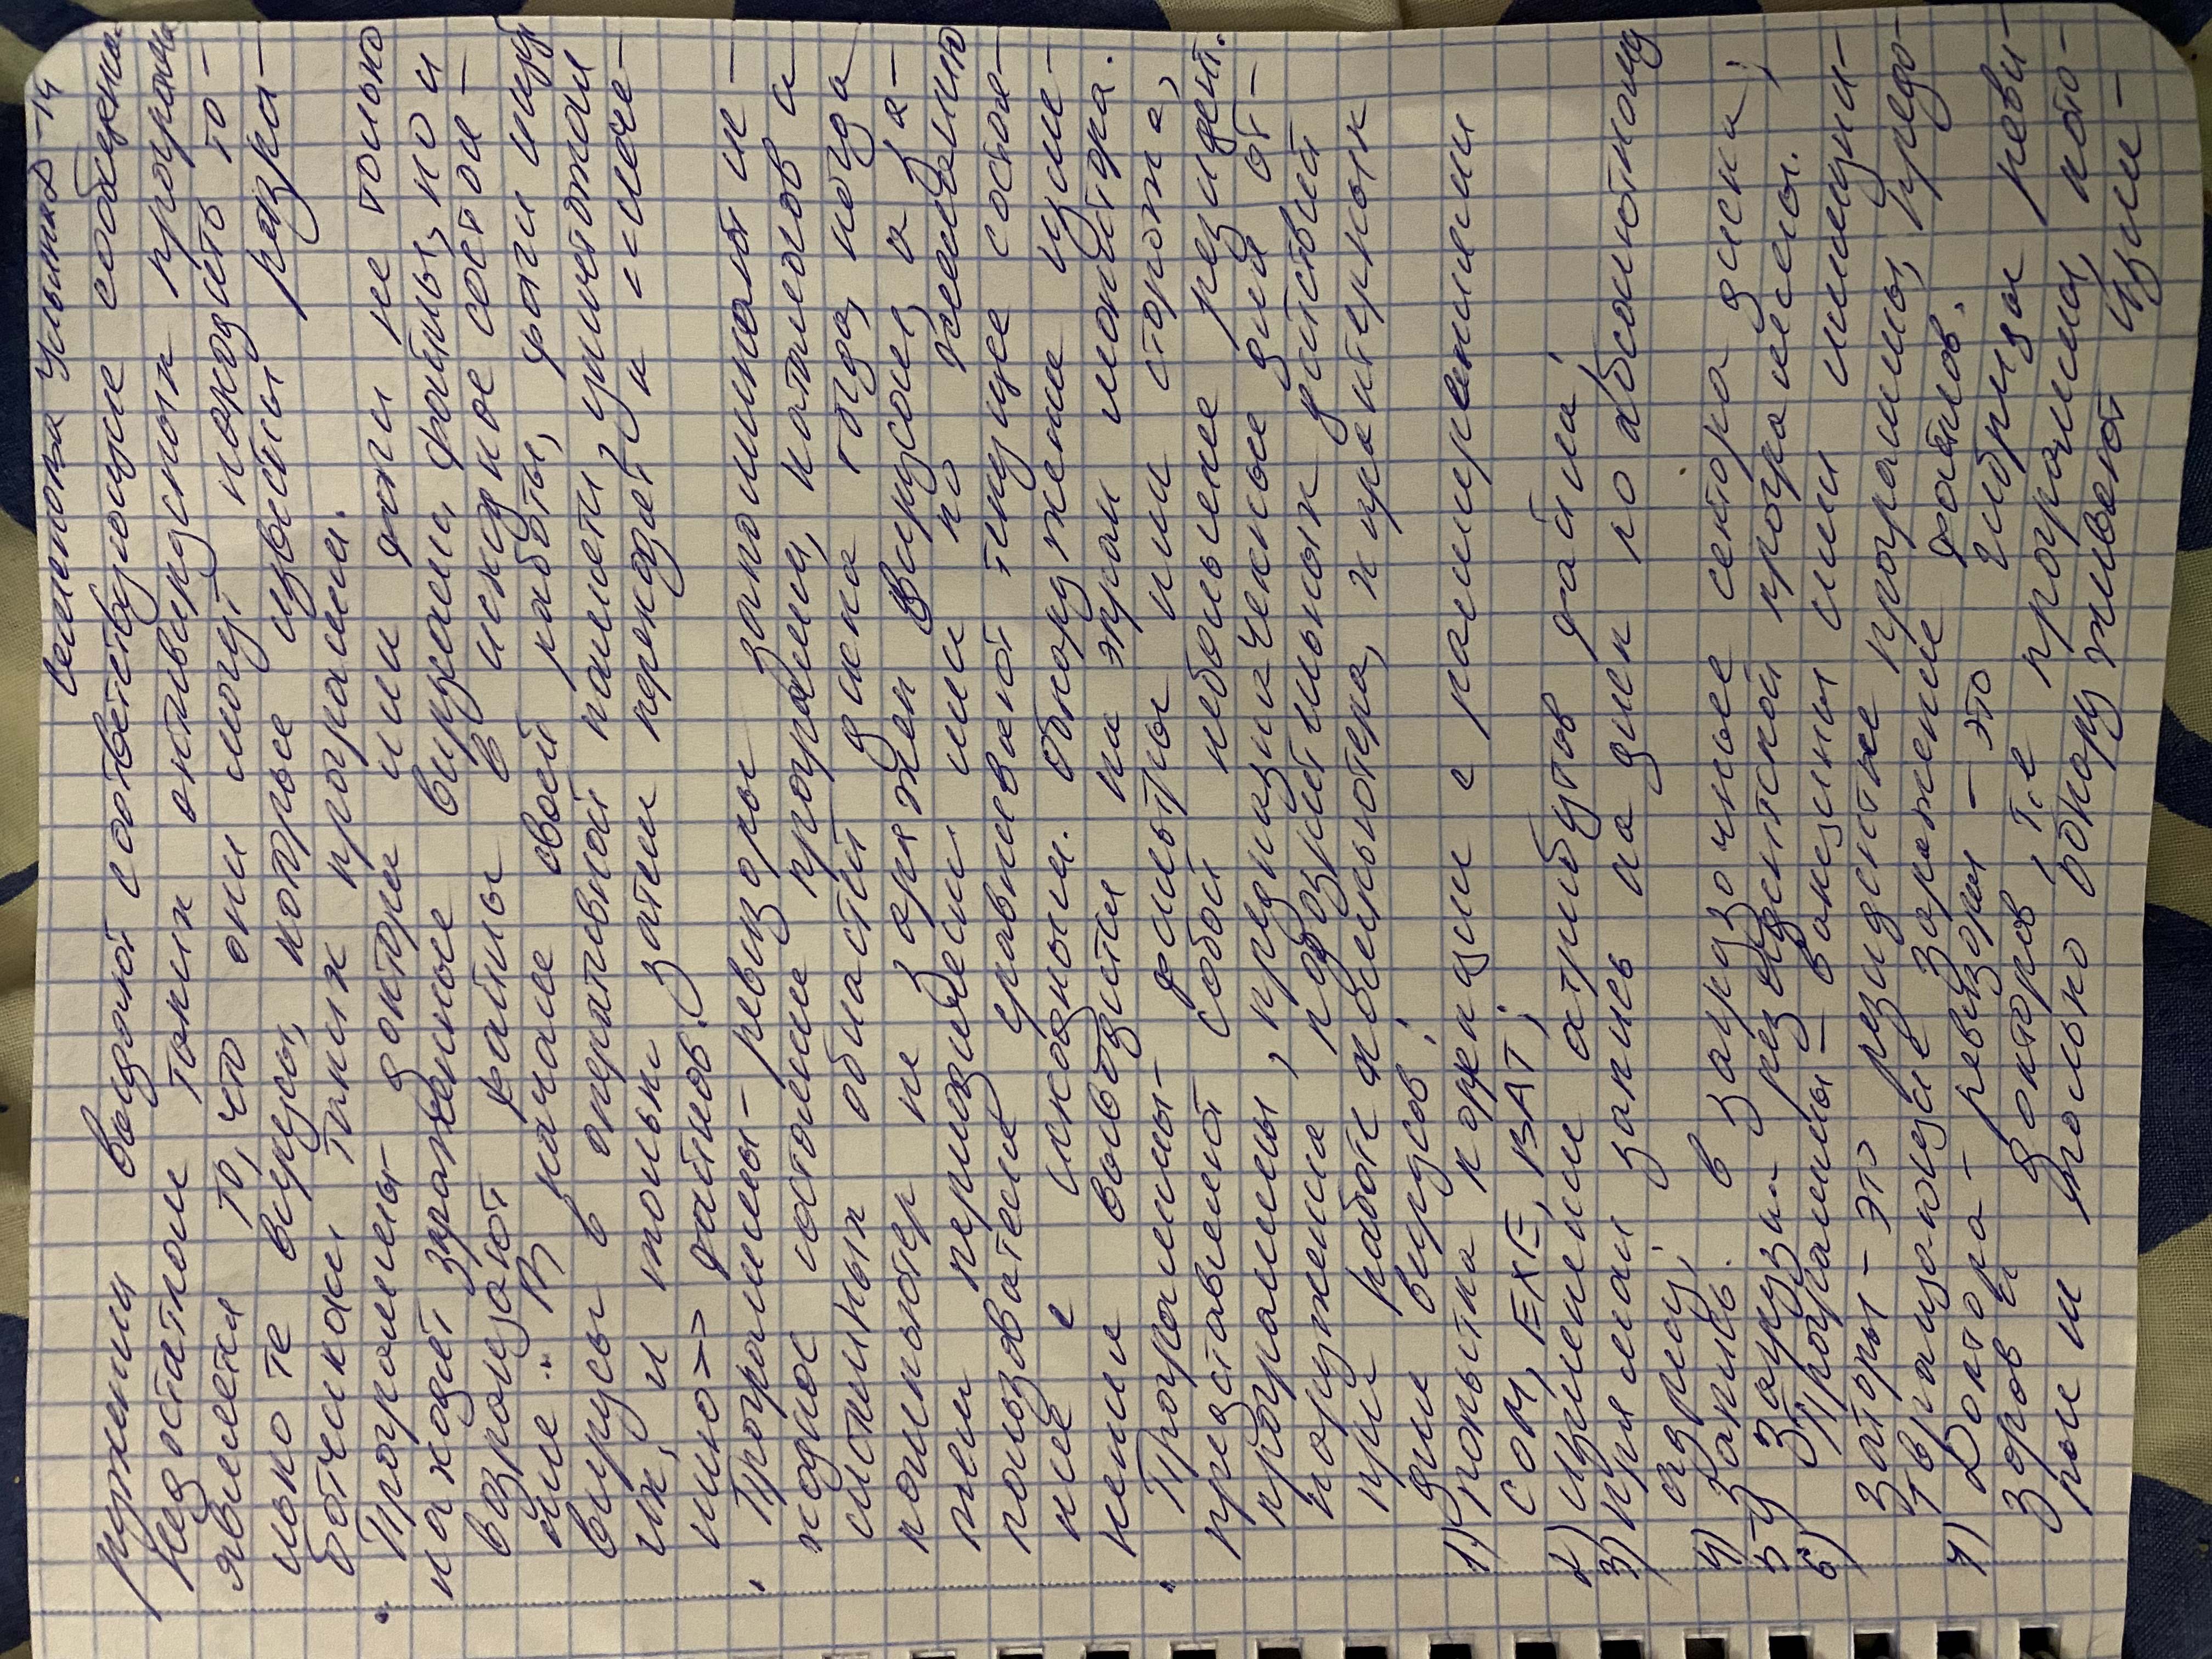 Семенова Ульяна Д-14
ружении выдают соответствующие сообщения.
Недостатком таких антивирусных программ
является то, что они могут находить то-
лько те вирусы, которые известны разра-
ботчикам таких программ.
• Программы-доктора или фаги не только
находят зараженные вирусами файлы, но и
возвращают файлы в исходное состоя-
ние. В начале своей работы, фаги ищут
вирусы в оперативной памяти, уничтожая
их, и только затем переходят к <<лече-
нию>> файлов.
• Программы-ревизоры запоминают ис-
ходное состояние программ, каталогов и
системных областей диска тогда, когда
компьютер не заражен вирусом, а за-
тем периодически или по желанию
пользователя сравнивают текущее состоя-
ние с исходным. Обнаружение изме-
нения выводится на экран монитора.
• Программы-фильтры или сторожа,
представляют собой небольшие резидент.
программы, предназначенные для об-
наружения подозрительных действий
при работе компьютера, характерных
для вирусов:
1) попытка коррекции с расширениями
COM, EXE, BAT;
2) изменении атрибутов файла;
3) прямая запись на диск по абсолютному
адресу;
4) Запись в загрузочные сектора диска;
5) Загрузки резидентской программы.
6) Программы-вакцины или иммуни-
заторы - это резидентные программы, предо-
твращающие заражение файлов.
7) Доктора-ревизоры - это гибриды реви-
зоров и докторов, т.е программы, кото-
рые не только обнаруживают изме-